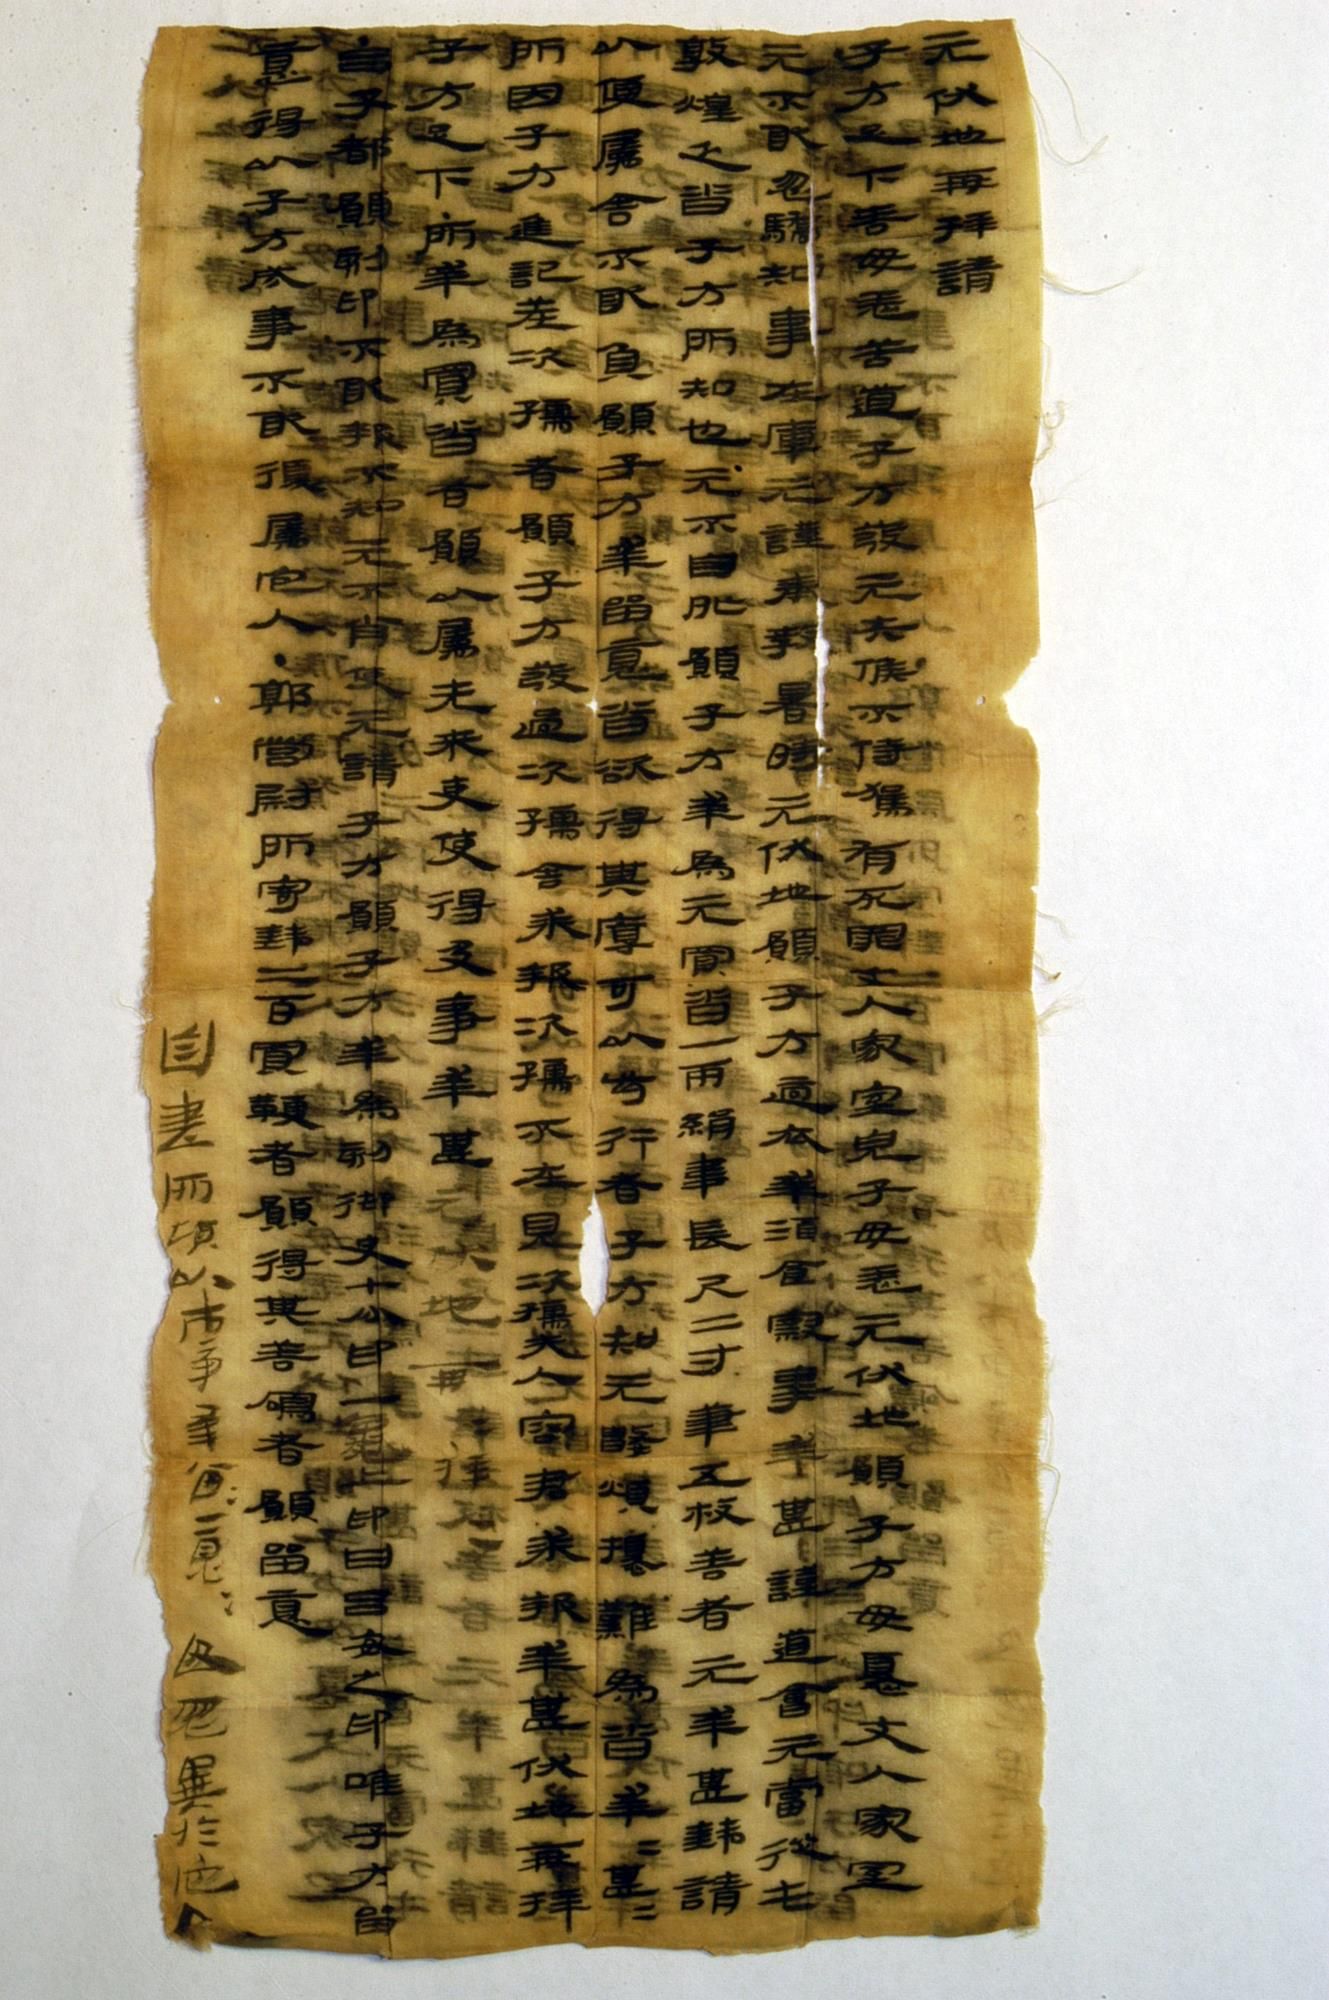 元伏地再拜請
子方足下善毋恙苦道子方發元失候不侍駕有死罪丈人家室兒子毋恙元伏地願子方毋憂丈人家室
元不敢忽驕知事在庫元謹奉教暑時元伏地願子方適衣幸酒食察事幸甚謹道會元當從屯
敦煌乏沓子方所知也元不自外願子方幸為元買沓一兩絹韋長尺二寸筆五枚善者元幸甚錢請
以便屬舍不敢負願子方幸留意沓欲得其厚可以步行者子方知元數煩擾難為沓幸=甚=
所因子方進記差次孺者願子方發過次孺舍求報次孺不在見次孺夫人容君求報幸甚伏地再拜
子方足下所幸為買沓者願以屬先來吏使得及事幸甚元伏地再拜再拜
呂子都願刻印不敢報不知元不肖使元請子方願子方幸為刻御史七分印一龜上印曰呂安之印唯子方留
意得以子方成事不敢復屬它人·郭營尉所寄錢二百買鞭者願得其善鳴者願留意
自書所願以市事幸留=意=毋忽異於它人